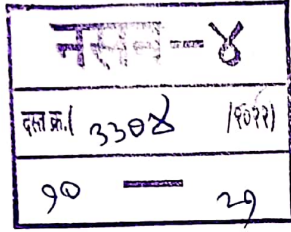 नसन-४
दस्त क्र.( ३३०४ /२०१२)
१० — २१